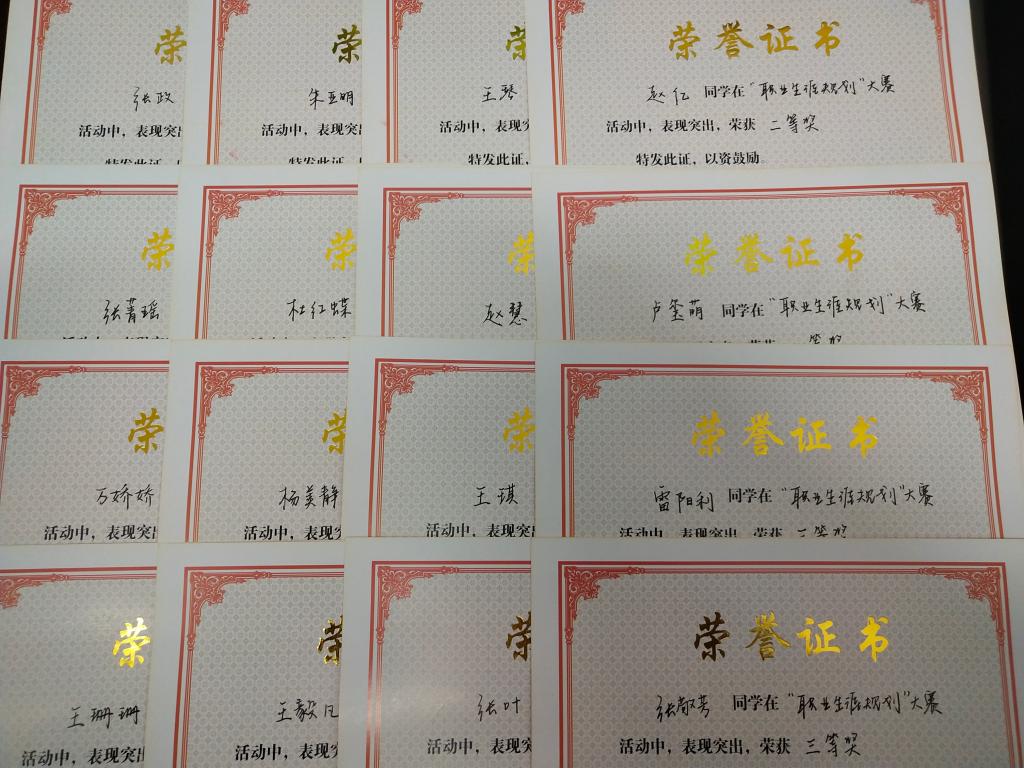 荣
张政
活动中，表现突
特发此证，
荣
朱亚明
活动中，表现突
特发此证，
荣
王琴
活动中，表现突
特发此证，
荣誉证书
赵亿 同学在“职业生涯规划”大赛
活动中，表现突出，荣获 二等奖
特发此证，以资鼓励。
荣
张菁瑶
荣
杜红蝶
荣
赵慧
荣誉证书
卢玺萌 同学在“职业生涯规划”大赛
荣
万娇娇
活动中，表现突
荣
杨美静
活动中，表现突
荣
王琪
活动中，表现突
荣誉证书
雷阳利 同学在“职业生涯规划”大赛
活动中，表现突出，荣获 三等奖
荣
王珊珊
活动中，表现突
荣
王毅凡
活动中，表现突
荣
张叶
活动中，表现突
荣誉证书
张敬芳 同学在“职业生涯规划”大赛
活动中，表现突出，荣获 三等奖